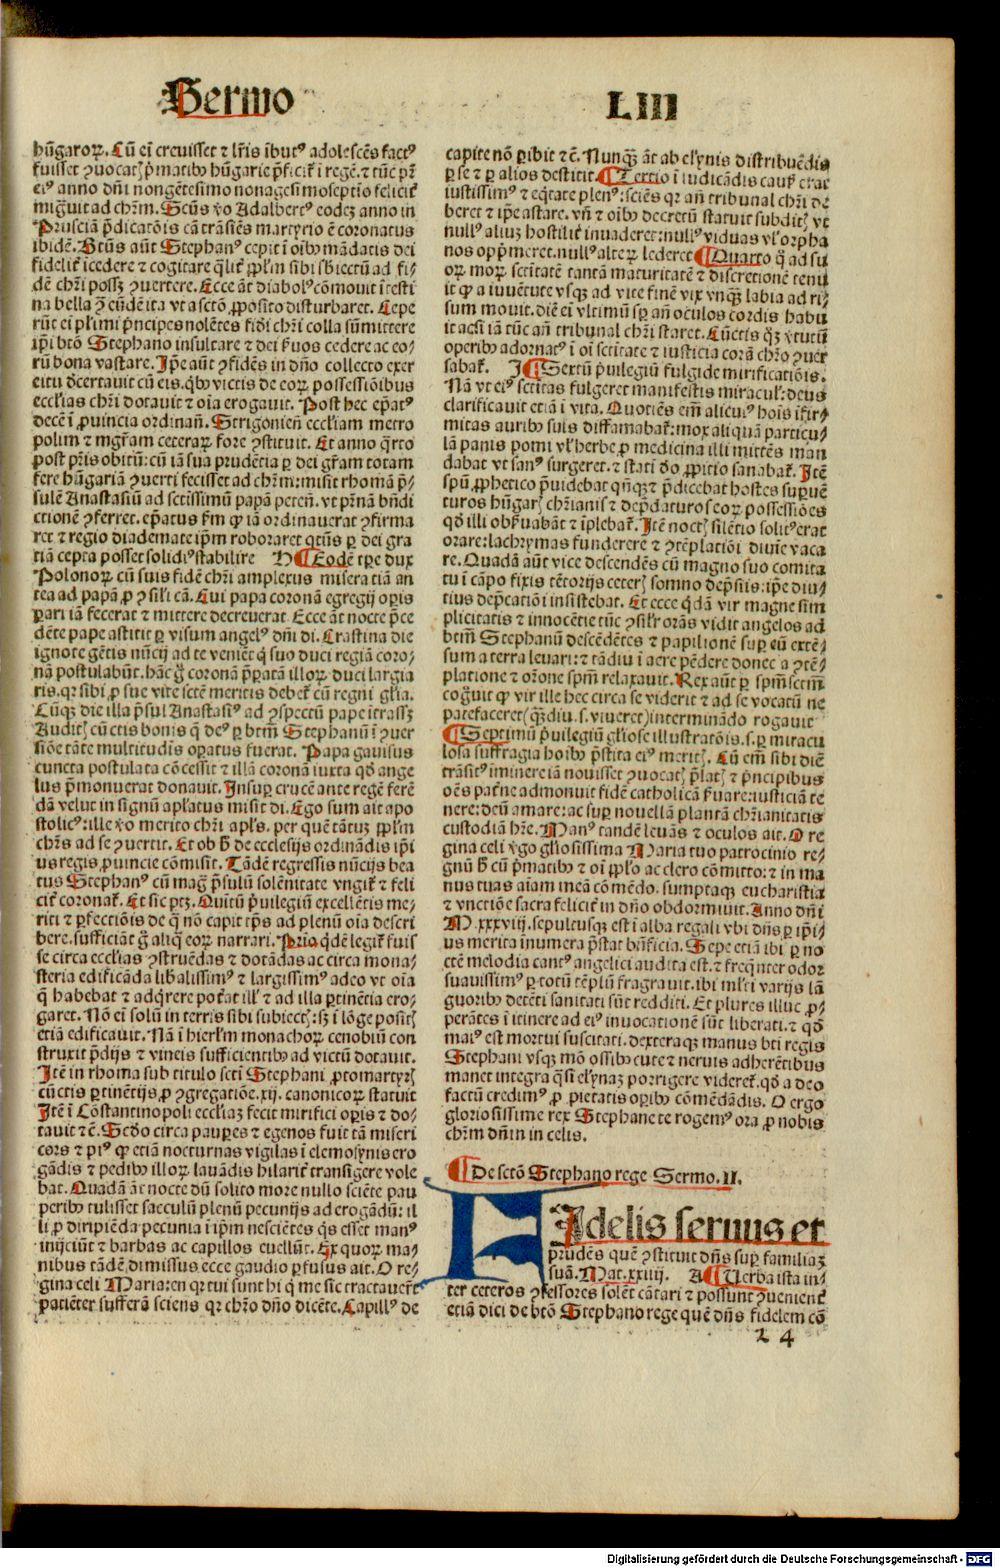 Sermo LIII
hūgaroꝝ. Cū eī creuisset ⁊ lr̄is ībutꝰ adolescēs factꝰ
fuisset ꝯuocat̄ p̄matibꝰ hūgarie p̄ficit᷑ ī regē. ⁊ tūc pr̄
eiꝰ anno dn̄i nongētesimo nonagesimoseptio felicit᷑
mig̃uit ad chr̄m. Sc̄us v̄o Adalbertꝰ eodeꝫ anno in
Prusciā p̄dicatōis cā trāsiēs martyrio ē coronatus
ibidē. Btūs aūt Stephanꝰ cepit ī oībꝰ mādatis dei
fidelit᷑ īcedere ⁊ cogitare q̄lit᷑ ꝓplm̄ sibi sb̄iectū ad fi⸗
dē chr̄i possꝫ ꝯuertere. Ecce āt diabolꝰ cōmouit ītesti
na bella ꝯ̄ eūdē ita vt a sctō ꝓposito disturbaret. Cepe
rūt ei plīmi p̄ncipes nolētes fid̄i chr̄i colla sūmittere
ip̄i btō Stephano insultare ⁊ dei ẜuos cedere ac eo⸗
rū bona vastare. Ip̄e aūt ꝯfidēs in dn̄o collecto exer
citu d̄certauit cū eis. q̄bꝰ victis de eoꝝ possessiōibus
ecclias chr̄i dotauit ⁊ oīa erogauit. Post hec ep̄atꝰ
decē ī ꝓuincia ordinan̄. Strigoniēn̄ eccl̄iam metro
polim ⁊ mg̃ram ceteraꝝ fore ꝯstituit. Et anno q̄rto
post pr̄is obitū: cū iā sua prudētia ꝑ dei gr̄am totam
fere hūgariā ꝯuerti fecisset ad chr̄m: misit rhomā p̄⸗
sulē Anastasiū ad sctissimū papā peten̄. vt pr̄nā bn̄di
ctionē ꝯferret. ep̄atus s̄m ꝙ iā ordinauerat ꝯfirma
ret ⁊ regio diademate ip̄m roboraret qtūs ꝑ dei gra
tiā cepta posset solidiꝰ stabilire H ¶ Eodē tꝑe dux
Polonoꝝ cū suis fidē chr̄i amplexus misera tiā an
tea ad papā ꝓ ꝯsil̄i cā. Cui papa coronā egregij oꝑis
ꝑari iā fecerat ⁊ mittere decreuerat Ecce āt nocte p̄ce
dēte pape astitit ꝑ visum angelꝰ dn̄i di. Crastina die
ignote gētis nūcij ad te veniēt q̄ suo duci regiā coro⸗
nā postulabūt. hāc g̃ coronā p̄ꝑatā illoꝝ duci largia
ris. qꝛ sibi ꝓ sue vite sctē meritis debet᷑ cū regni gl̄ia.
Cūqꝫ die illa p̄sul Anastasiꝰ ad ꝯspectū pape ītrassꝫ
Audit̄ cūctis bonis q̄ deꝰ ꝑ btm̄ Stephanū ī ꝯuer
siōe tāte multitudīs oꝑatus fuerat. Papa gauisus
cuncta postulata cōcessit ⁊ illā coronā iuxta qd̄ ange
lus p̄monuerat donauit. Insuꝑ crucē ante regē ferē⸗
dā velut in signū apl̄atus misit di. Ego sum ait apo
stolicꝰ: ille v̄o merito chr̄i apl̄s. per quē tātuꝫ ꝓplm̄
chr̄s ad se ꝯuertit. Et ob h̄ de ecclesijs ordinādis ip̄i
us regis ꝓuincie cōmisit. Tādē regressis nūcijs bea
tus Stephanꝰ cū mag̃ p̄sulū solēnitate vngit᷑ ⁊ feli
cit᷑ coronat᷑. Et sic ptꝫ. Quītū p̄uilegiū excellētis me⸗
riti ⁊ ꝑfectiōis de q̄ nō capit tp̄s ad plenū oīa descri
bere. sufficiāt g̃ aliq̄ eoꝝ narrari. Prīo q̄dē legit᷑ fuis
se circa ecclīas ꝯstruēdas ⁊ dotādas ac circa mona⸗
steria edificāda libālissimꝰ ⁊ largissimꝰ adeo vt oīa
q̄ habebat ⁊ adq̄rere potāt illꝰ ⁊ ad illa ꝑtinētia ero⸗
garet. Nō ei solū in terris sibi subiect̄: sꝫ ī lōge posit̄
etiā edificauit. Nā ī hierl̄m monachoꝝ cenobiū con
struxit p̄dijs ⁊ vineis sufficientibꝰ ad victū dotauit.
Itē in rhoma sub titulo sctī Stephani ꝓtomartyr̄
cūctis ꝑtinētijs ꝓ ꝯgregatiōe. xij. canonicoꝝ statuit
Itē ī Cōstantinopoli eccl̄iaꝫ fecit mirifici oꝑis ⁊ do⸗
tauit ⁊c̄. Scd̄o circa pauꝑes ⁊ egenos fuit tā miseri
cors ⁊ piꝰ ꝙ etiā nocturnas vigilas ī elemosynis ero
gādis ⁊ pedibꝰ illoꝝ lauādis hilarit᷑ transigere vole
bat. Quadā āt nocte dū solito more nullo sciēte pau
ꝑibꝰ tulisset sacculū plenū pecunijs ad erogādū: il
li ꝓ diripiēda pecunia ī ip̄m nesciētes q̄s esset manꝰ
inijciūt ⁊ barbas ac capillos euellūt. Ex quoꝝ ma⸗
nibus tādē dimissus ecce gaudio ꝑfusus ait. O re⸗
gina celi Maria: en qꝛ tui sunt hi q̄ me sic tractauer̄t
patiēter sufferā sciens qꝛ chr̄o dn̄o dicēte. Capillꝰ de
capite nō ꝑibit ⁊c̄. Nunqꝫ āt ab elynis distribuēdis
ꝑ se ⁊ ꝑ alios destitit. ¶ Tertio ī iudicādis caus᷑ erat
iustissimꝰ ⁊ eq̄tate plenꝰ: sciēs qꝛ an̄ tribunal chr̄i de
beret ⁊ ip̄e astare. vn̄ ⁊ oībꝰ decretū statuit subdit̄ vt
nullꝰ aliuꝫ hostilit᷑ inuaderet: nullꝰ viduas vl̓ orpha
nos opp̄meret. nullꝰ alteꝝ lederet ¶ Quarto q̄ ad su
oꝝ moꝝ sctitatē tantā maturitatē ⁊ discretionē tenu
it ꝙ a iuuētute vsqꝫ ad vite finē vix vnqꝫ labia ad ri⸗
sum mouit. diē ei vltimū sꝑ an̄ oculos cordis habu
it acsi iā tūc an̄ tribunal chr̄i staret. Cūctis q̄ꝫ v̓tutū
operibꝰ adornatꝰ ī oī sctitate ⁊ iusticia corā chr̄o ꝯuer
sabat᷑. I ¶ Sextū p̄uilegiū fulgide mirificatiōis.
Nā vt eiꝰ sctitas fulgeret manifestis miraculꝭ: deus
clarificauit etiā ī vita. Quotiēs em̄ alicuiꝰ hoīs īfir⸗
mitas auribꝰ suis diffamabat᷑: mox aliquā particu⸗
lā panis pomi vl̓ herbe ꝓ medicina illi mittēs man
dabat vt sanꝰ surgeret. ⁊ stati d̄o ꝓpitio sanabat᷑. Itē
spū ꝓphetico p̄uidebat qn̄qꝫ ⁊ p̄dicebat hostes suꝑuē
turos hūgar̄ chr̄ianis ⁊ dep̄daturos eoꝝ possessiōes
qd̄ illi obẜuabāt ⁊ īplebat᷑. Itē noct̄ silētio solitꝰ erat
orare: lachrymas fundere ⁊ ꝯtēplatiōi diuīe vaca
re. Quadā aūt vice descendēs cū magno suo comita
tu ī cāpo fixis tētorijs ceter̄ somno dep̄ssis: ip̄e diu⸗
tius dep̄catiōi insistebat. Et ecce q̄dā vir magne sim
plicitatis ⁊ innocētie tūc ꝯsil̄r orās vidit angelos ad
btm̄ Stephanū descēdētes ⁊ papilionē suꝑ eū extē⸗
sum a terra leuari: ⁊ tādiu ī aere pēdere donec a ꝯtē⸗
platione ⁊ or̄one spm̄ relaxauit. Rex aūt ꝑ spm̄ sctm̄
cog̃uit ꝙ vir ille hec circa se viderit ⁊ ad se vocatū ne
patefaceret (q̄ꝫdiu .s. viueret) interminādo rogauit
¶ Septimū p̄uilegiū gl̄iose illustratōis .s. ꝑ miracu
losa suffragia hoībꝰ p̄stita eiꝰ merit̄. Cū em̄ sibi diē
trāsitꝰ iminere iā nouisset ꝯuocat̄ p̄lat̄ ⁊ p̄ncipibus
oēs pat̓ne admonuit fidē catholicā ẜuare: iusticiā te
nere: deū amare: ac suꝑ nouellā plantā chr̄ianitatis
custodiā hr̄e. Manꝰ tandē leuās ⁊ oculos ait. O re
gina celi v̓go gl̄iosissima Maria tuo patrocinio re⸗
gnū cū p̄matibꝰ ⁊ oī ꝓplo ac clero cōmitto: ⁊ in ma
nus tuas aīam meā cōmēdo. sumptaqꝫ eucharistia
⁊ vnctiōe sacra felicit᷑ in dn̄o obdormiuit. Anno dn̄i
M.xxxviij. sepultusqꝫ est ī alba regali vbi dn̄s ꝑ ip̄i⸗
us merita inumera p̄stat bn̄ficia. Sepe etiā ibi ꝑ no
ctē melodia cantꝰ angelici audita est. ⁊ freq̄nter odor
suauissimꝰ ꝑ totū tēplū fragrauit. ibi ml̓ti varijs lā
guoribꝰ detēti sanitati sūt redditi. Et plures illuc ꝓ⸗
perātes ī itinere ad eiꝰ inuocationē sūt liberati. ⁊ qd̄
maiꝰ est mortui suscitati. dexteraqꝫ manus bti regis
Stephani vsqꝫ mō ossibꝰ cute ⁊ neruis adherētibus
manet integra q̄si elynaꝫ porrigere videret᷑. qd̄ a deo
factū credim̄ ꝓ pietatis oꝑibꝰ cōmēdādis. O ergo
gloriosissime rex Stephane te rogemꝰ ora ꝓ nobis
chr̄m dn̄m in celis.
¶ De sctō Stephano rege Sermo. II.
FIdelis seruus et
prudēs quē ꝯstituit dn̄s suꝑ familiaꝫ
suā. Mat. xxiiij. A ¶ Uerba ista in⸗
ter ceteros ꝯfessores solēt cātari ⁊ possunt ꝯuenient᷑
etiā dici de btō Stephano rege quē dn̄s fidelem cō
2 4
Digitalisierung gefördert durch die Deutsche Forschungsgemeinschaft - DFG